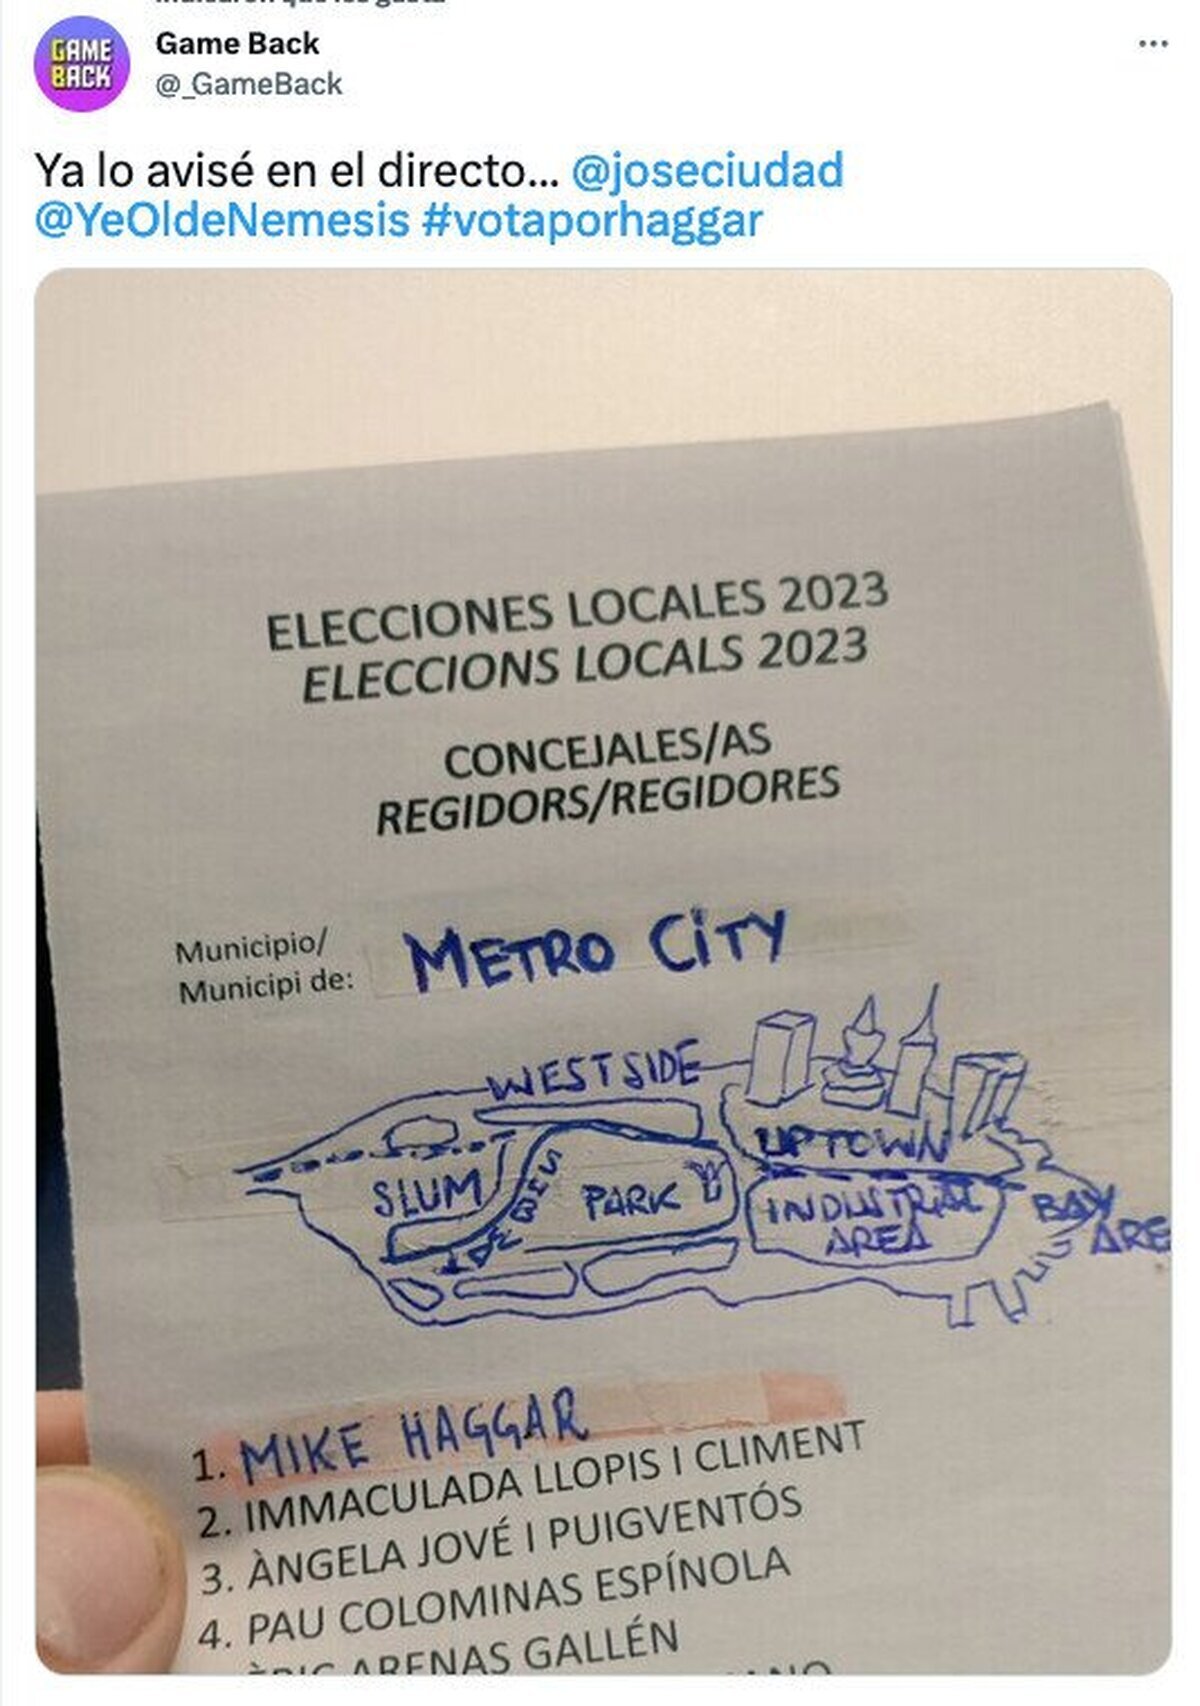 GAME
BACK
Game Back
@_GameBack
Ya lo avisé en el directo... @joseciudad
@YeOldeNemesis #votaporhaggar
ELECCIONES LOCALES 2023
ELECCIONS LOCALS 2023
CONCEJALES/AS
REGIDORS/REGIDORES
Municipio/
Municipi de:
METRO CITY
WEST SIDE
UPTOWN
SLUM
PARK
INDUSTRIAL
AREA
BAY
ARE
1. MIKE HAGGAR
2. IMMACULADA LLOPIS I CLIMENT
3. ÀNGELA JOVÉ I PUIGVENTÓS
4. PAU COLOMINAS ESPÍNOLA
ARENAS GALLÉN